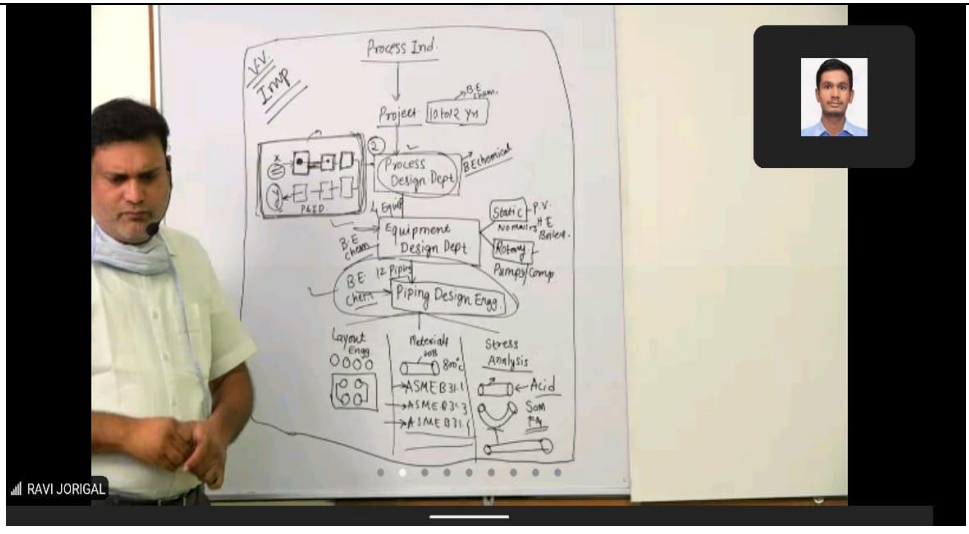 V.V.
Imp
Process Ind.
B.E
chem.
Project
10 to 12 yr
2
Process
Design Dept
B.E chemical
x
y
P&ID
4 Equip
Equipment
Design Dept
B.E
chem
Static
P.V.
H E
Boiler.
Rotary
Pumps/Comp
12 Piping
B.E.
Chem
Piping Design Engg.
Layout
Engg
Materials
800°c
ASME B31.1
ASME B31.3
ASME B31.
Stress
Analysis
Acid
50m
RAVI JORIGAL